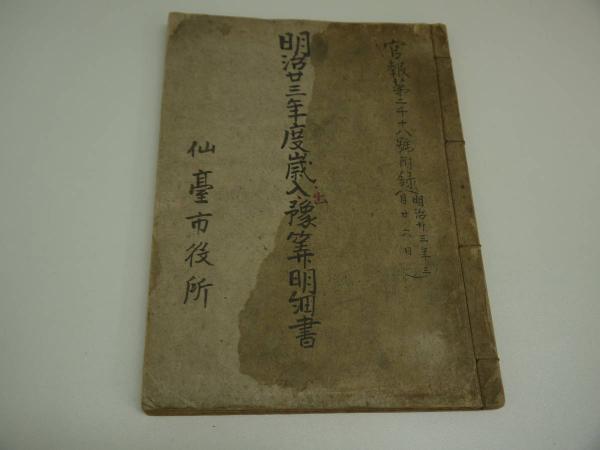 官報第二千十八號附録(明治廿三年三月廿六日)
明治廿三年度歳入出豫算明細書
仙臺市役所